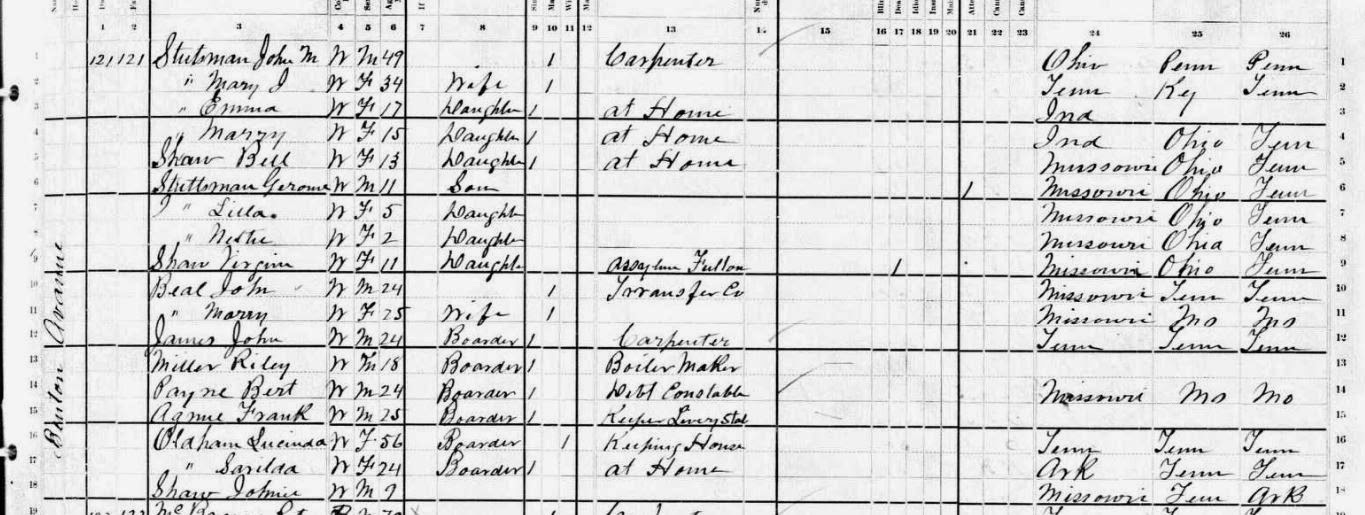 1 2 3 4 5 6 7 8 9 10 11 12 13 14 15 16 17 18 19 20 21 22 23 24 25 26
1 121 121 Stutsman John M W M 49 1 Carpenter Ohio Penn Penn 1
2 " Mary J W F 34 Wife 1 Tenn Ky Tenn 2
3 " Emma W F 17 Daughter 1 at Home Ind 3
4 " Marzy W F 15 Daughter 1 at Home Ind Ohio Tenn 4
5 Shaw Bell W F 13 Daughter 1 at Home Missowri Ohio Tenn 5
6 Stuttsman Gerome W M 11 Son 1 Missowri Ohio Tenn 6
7 " Lilla W F 5 Daught Missowri Ohio Tenn 7
8 " W F 2 Daught Missowri Ohio Tenn 8
9 Shaw Virgini W F 11 Daught Fulton 1 Missowri Ohio Tenn 9
10 Beal John W M 24 1 Transfer Co Missowri Tenn Tenn 10
11 " Marry W F 25 Wife 1 Missowri Mo Mo 11
12 James John W M 24 Boarder 1 Carpenter Tenn Tenn Tenn 12
13 Miller Riley W M 18 Boarder 1 Boiler Maker 13
14 Payne Bert W M 24 Boarder 1 Constable Missowri Mo Mo 14
15 Frank W M 25 Boarder 1 Keeper Livery Stabl 15
16 Oldham Lucinda W F 56 Boarder 1 Keeping House Tenn Tenn Tenn 16
17 " Sarilda W F 24 Boarder 1 at Home Ark Tenn Tenn 17
18 Shaw Johnie W M 9 Missowri Tenn Ark 18
19